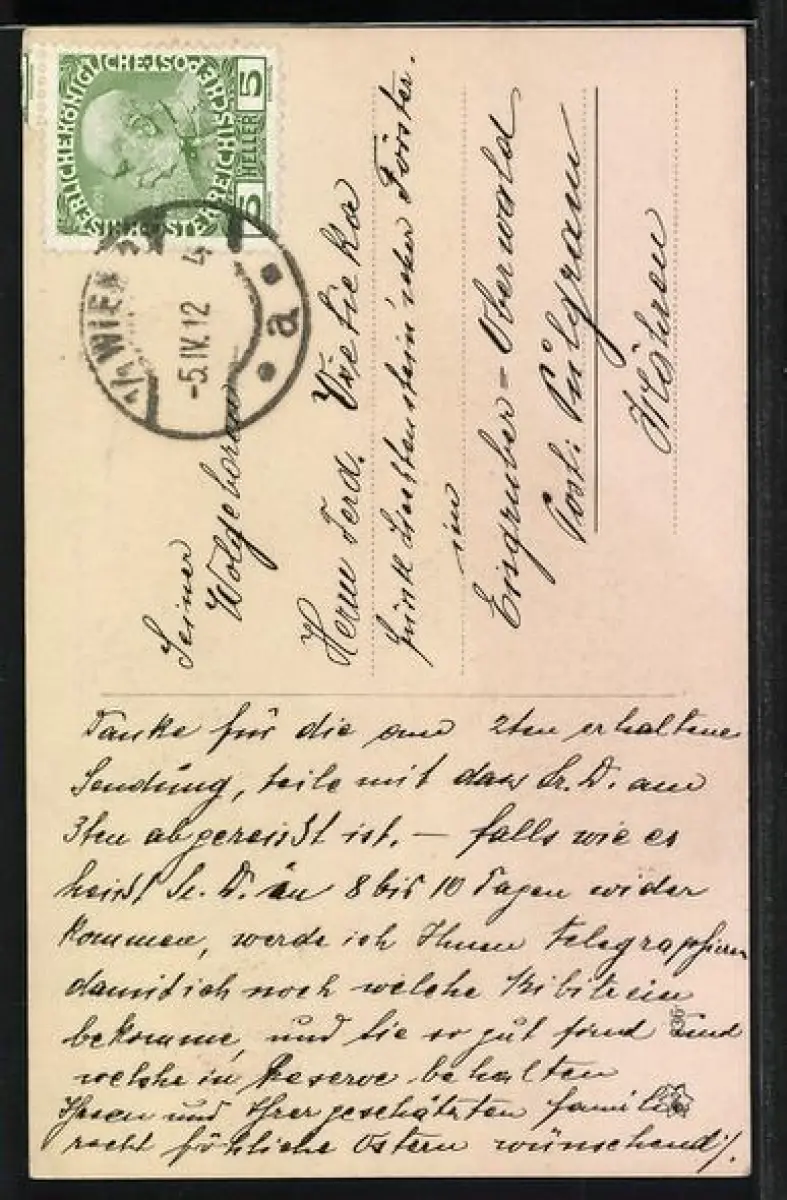 KAISERLICHE KÖNIGLICHE ÖSTERREICHISCHE POST
5 HELLER 5
1/1 WIEN
-5.IV.12 4
a
Seiner
Wolgeboren
Herrn Ferd.
Fürstl Liechtenstein'scher Förster.
im
Eisgruber-Oberwald
Post: Pülgram
Mähren
Danke für die am 2ten erhaltene
Sendung, teile mit dass Sr. D. am
3ten abgereisst ist. — falls wie es
heisst Sr. D. in 8 bis 10 Tagen wider
kommen, werde ich Ihnen telegraphieren
damit ich noch welche Kibitzein
bekomme, und Sie so gut sind und
welche in Reserve behalten
Ihnen und Ihrer geschätzten familie
recht fröhliche Ostern wünschend /.